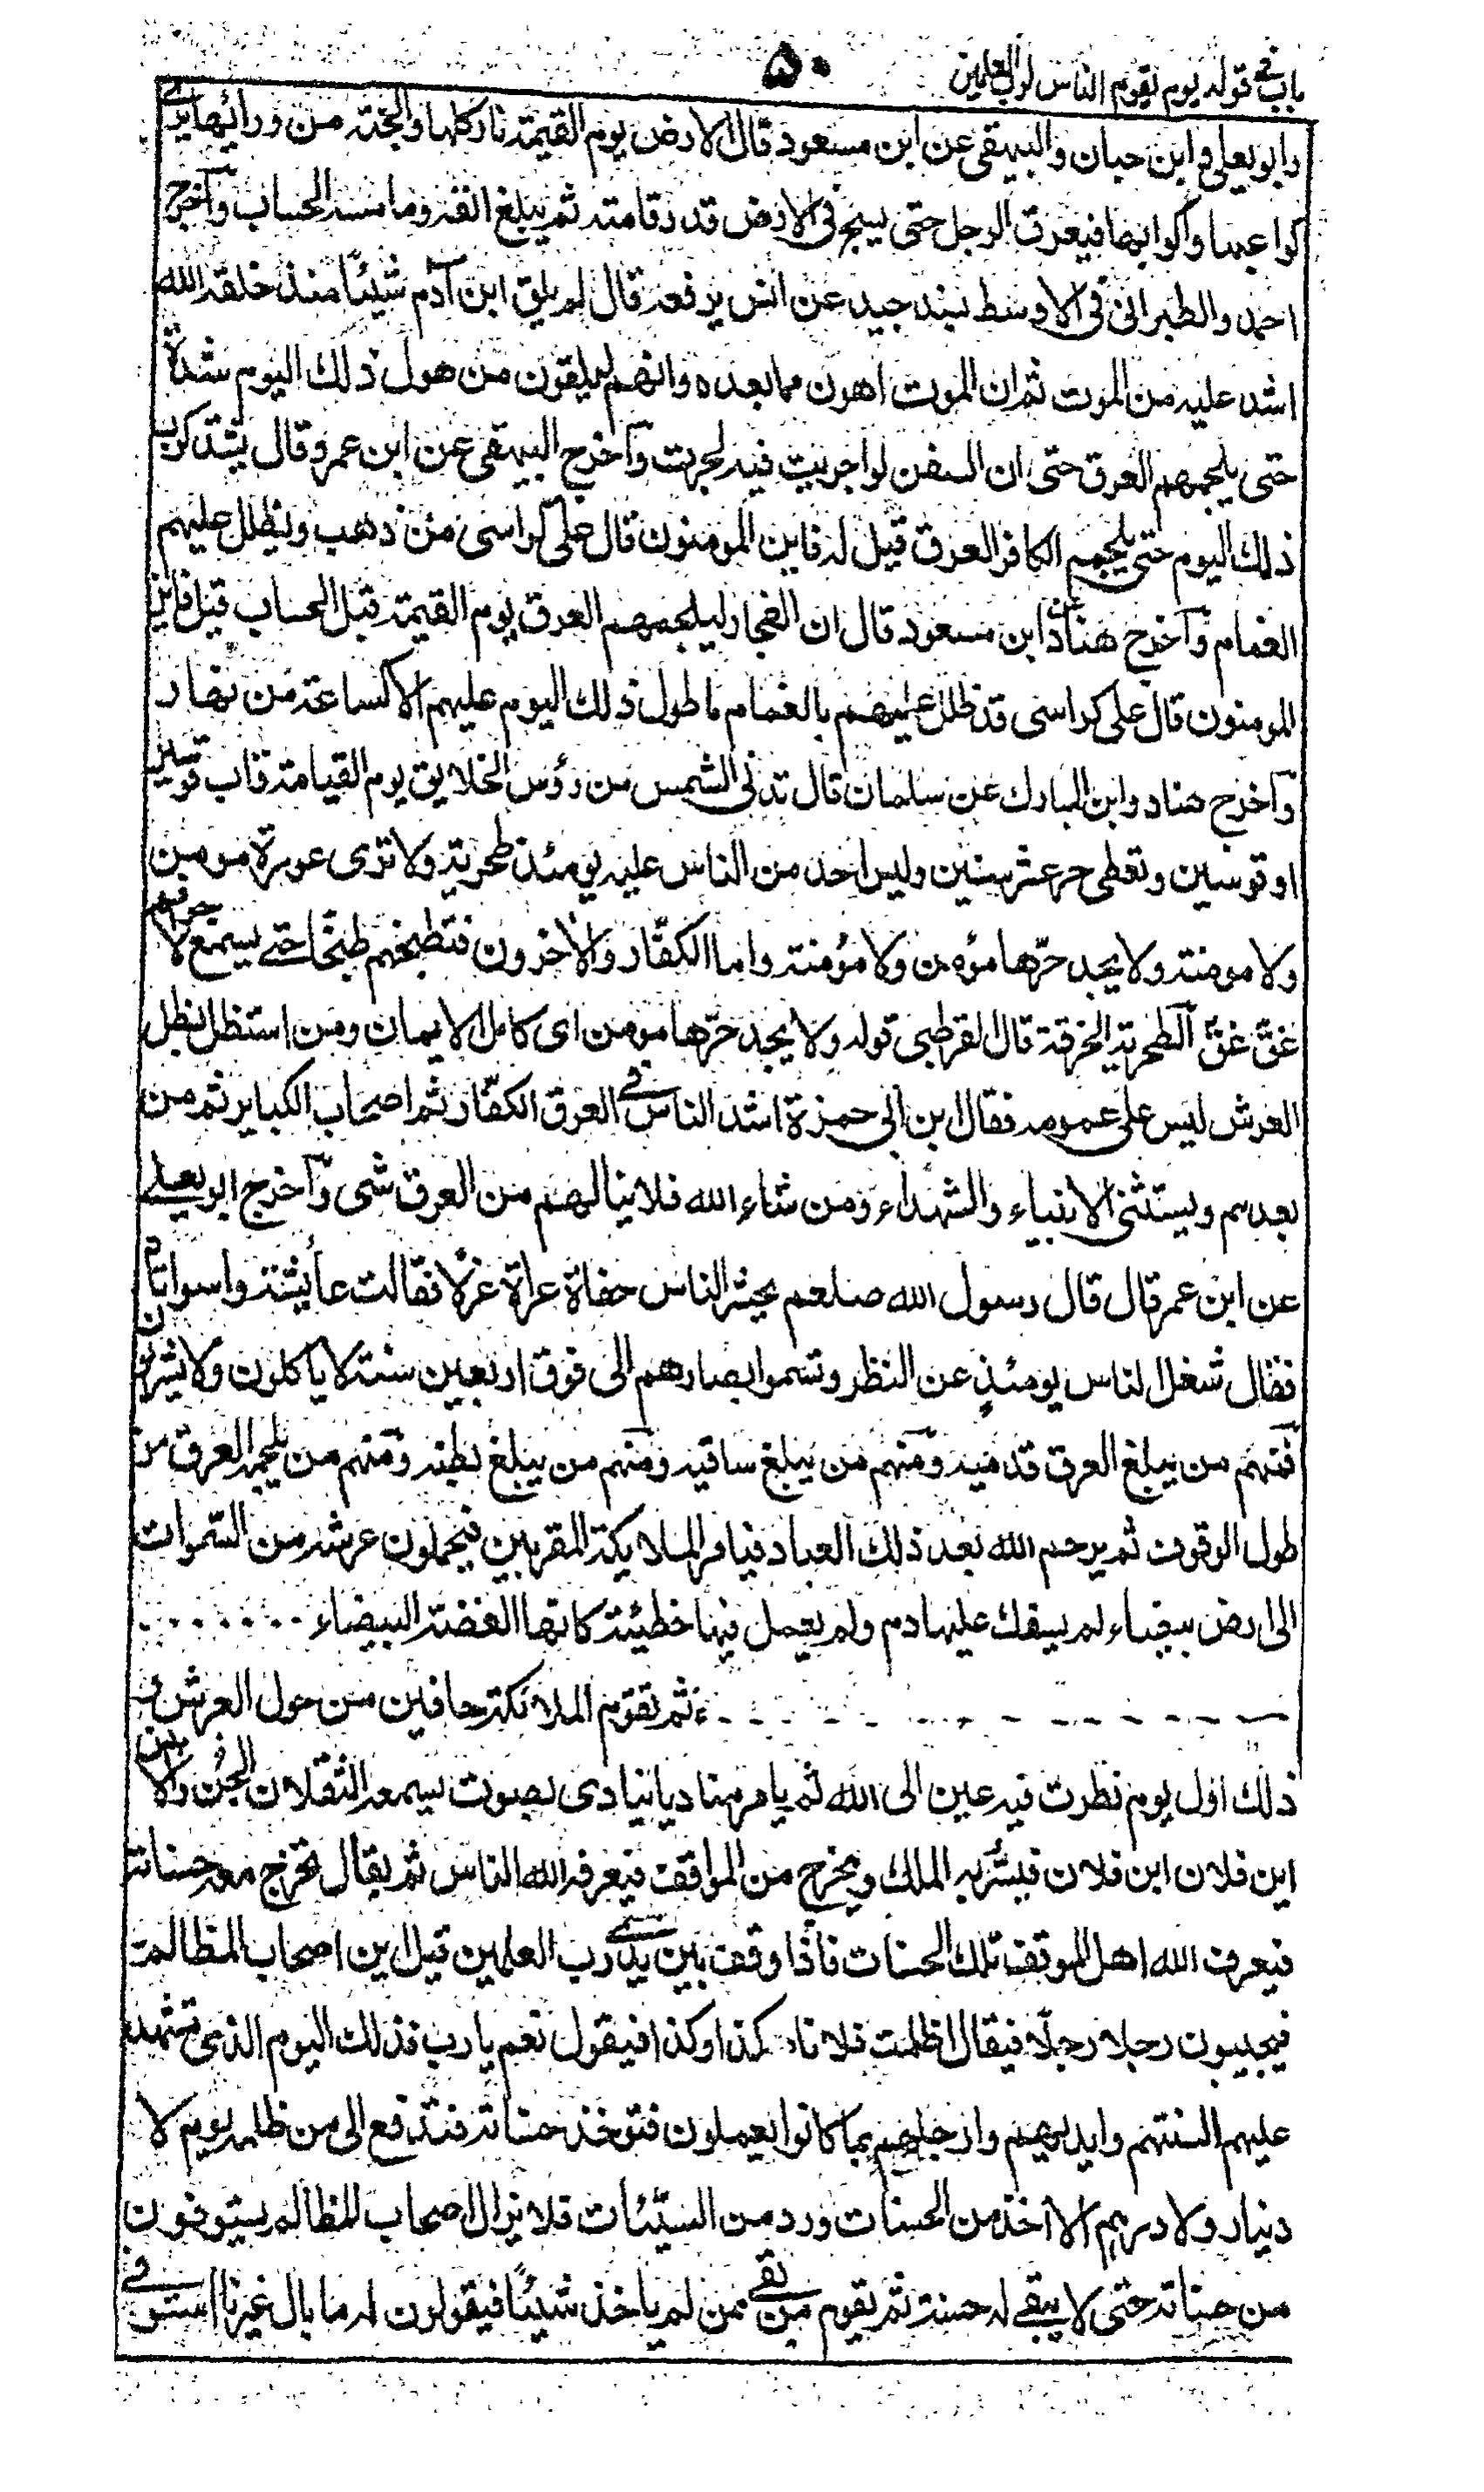 باب في قوله يوم يقوم الناس لرب العلمين
۵۰
وابو يعلى وابن حبان والبيهقى عن ابن مسعود قال الارض يوم القيمة نار كلها والجنة من ورائها يرى
كواعبها واكوابها فيعرق الرجل حتى يسيح فى الارض قدر قامته ثم يبلغ انفه وما مسه الحساب وآخرج
احمد والطبرانى فى الاوسط بسند جيد عن انس يرفعه قال لم يلق ابن آدم شيئا منذ خلقه الله
اشد عليه من الموت ثم ان الموت اهون مما بعده وانهم ليلقون من هول ذلك اليوم شدة
حتى يلجمهم العرق حتى ان السفن لو اجريت فيه لجرت وآخرج البيهقى عن ابن عمرو قال يشتد كرب
ذلك اليوم حتى يلجم الكافر العرق قيل له فاين المومنون قال على كراسى من ذهب ويظلل عليهم
الغمام وآخرج هناد عن ابن مسعود قال ان الفجار ليلجمهم العرق يوم القيمة قبل الحساب قيل فاين
المومنون قال على كراسى قد ظلل عليهم بالغمام ما طول ذلك اليوم عليهم الا كساعة من نهار
وآخرج هناد وابن المبارك عن سلمان قال تدنى الشمس من رؤس الخلايق يوم القيامة قاب قوسين
او قوسين وتعطى حر عشر سنين وليس احد من الناس عليه يومئذ طحربة ولا ترى عورة مومن
ولا مومنة ولا يجد حرّها مؤمن ولا مؤمنة واما الكفّار والآخرون فتطبخهم طبخًا حتے يسمع لاجوافهم
غقّ غقّ الطحربة الخرقة قال لقرطبى قوله ولا يجد حرّها مومن اى كامل الايمان ومن استظل بظل
العرش ليس على عمومه فقال ابن ابى حمزة اشد الناس فے العرق الكفّار ثم اصحاب الكباير ثم من
بعدهم ويستثنى الانبياء والشهداء ومن شاء الله فلا ينالهم من العرق شى وآخرج ابو يعلے
عن ابن عمر قال قال رسول الله صلعم يحشر الناس حفاة عراة غرلا فقالت عايشة واسواتاه
فقال شغل الناس يومئذٍ عن النظر وتسموا بصارهم الى فوق اربعين سنة لا ياكلون ولا يشربون
فمنهم من يبلغ العرق قدميه ومنهم من يبلغ ساقيه ومنهم من يبلغ بطنه ومنهم من يلجمه العرق من
طول الوقوف ثم يرحم الله بعد ذلك العباد فيامر الملايكة المقربين فيحملون عرشه من السّموات
الى ارض بيضاء لم يسفك عليها دم ولم يعمل فيها خطيئة كانها الفضة البيضاء
ثم تقوم الملائكة حافين من حول العرش و
ذلك اول يوم نظرت فيه عين الى الله ثم يامر مناديا ينادى بصوت يسمعه الثقلان الجن والانس
اين فلان ابن فلان فيسر به الملك ويخرج من المواقف فيعرفه الله الناس ثم يقال تخرج معه حسناته
فيعرف الله اهل الموقف تلك الحسنات فاذا وقف بين يدے رب العلمين قيل اين اصحاب المظالم
فيجيبون رجلا رجلّا فيقال اظلمت فلانا كذا وكذا فيقول نعم يا رب فذلك اليوم الذى تشهد
عليهم السنتهم وايديهم وارجلهم بما كانوا يعملون فتوخذ حسناته فتدفع الى من ظلمه يوم لا
دينار ولا درهم الا اخذ من الحسنات ورد من السيّئات فلا يزال اصحاب المظالم يستوفون
من حسناته حتى لا يبقے له حسنة ثم يقوم من بقے ممن لم ياخذ شيئًا فيقولون له ما بال غيرنا استوفے